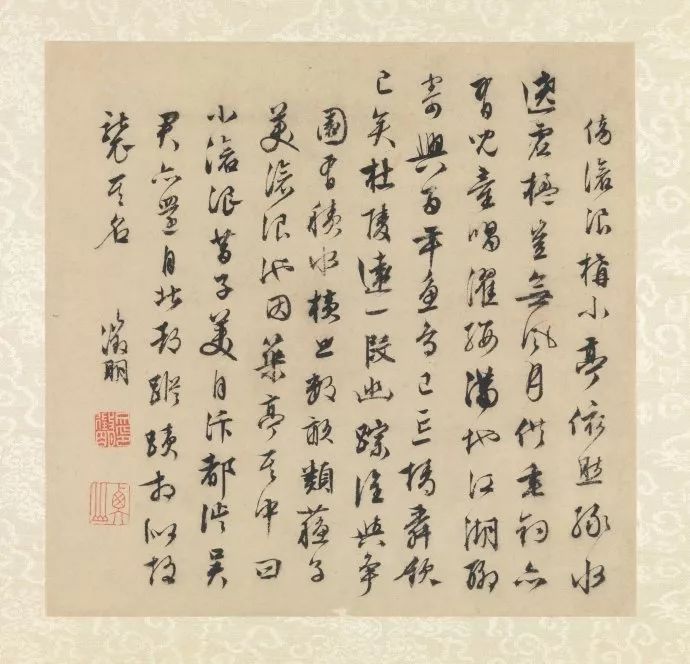 傍滄浪搆小亭依然綠水
遶虛楹豈無風月供垂釣亦
有兒童唱濯纓滿地江湖聊
寄興百年魚鳥已忘情舜欽
已矣杜陵遠一段幽踪誰與爭
園有積水橫亘數畝類蘇子
美滄浪池因築亭其中曰
小滄浪昔子美自汴都徙吳
君亦還自北都蹤蹟相似故
襲其名
徵明